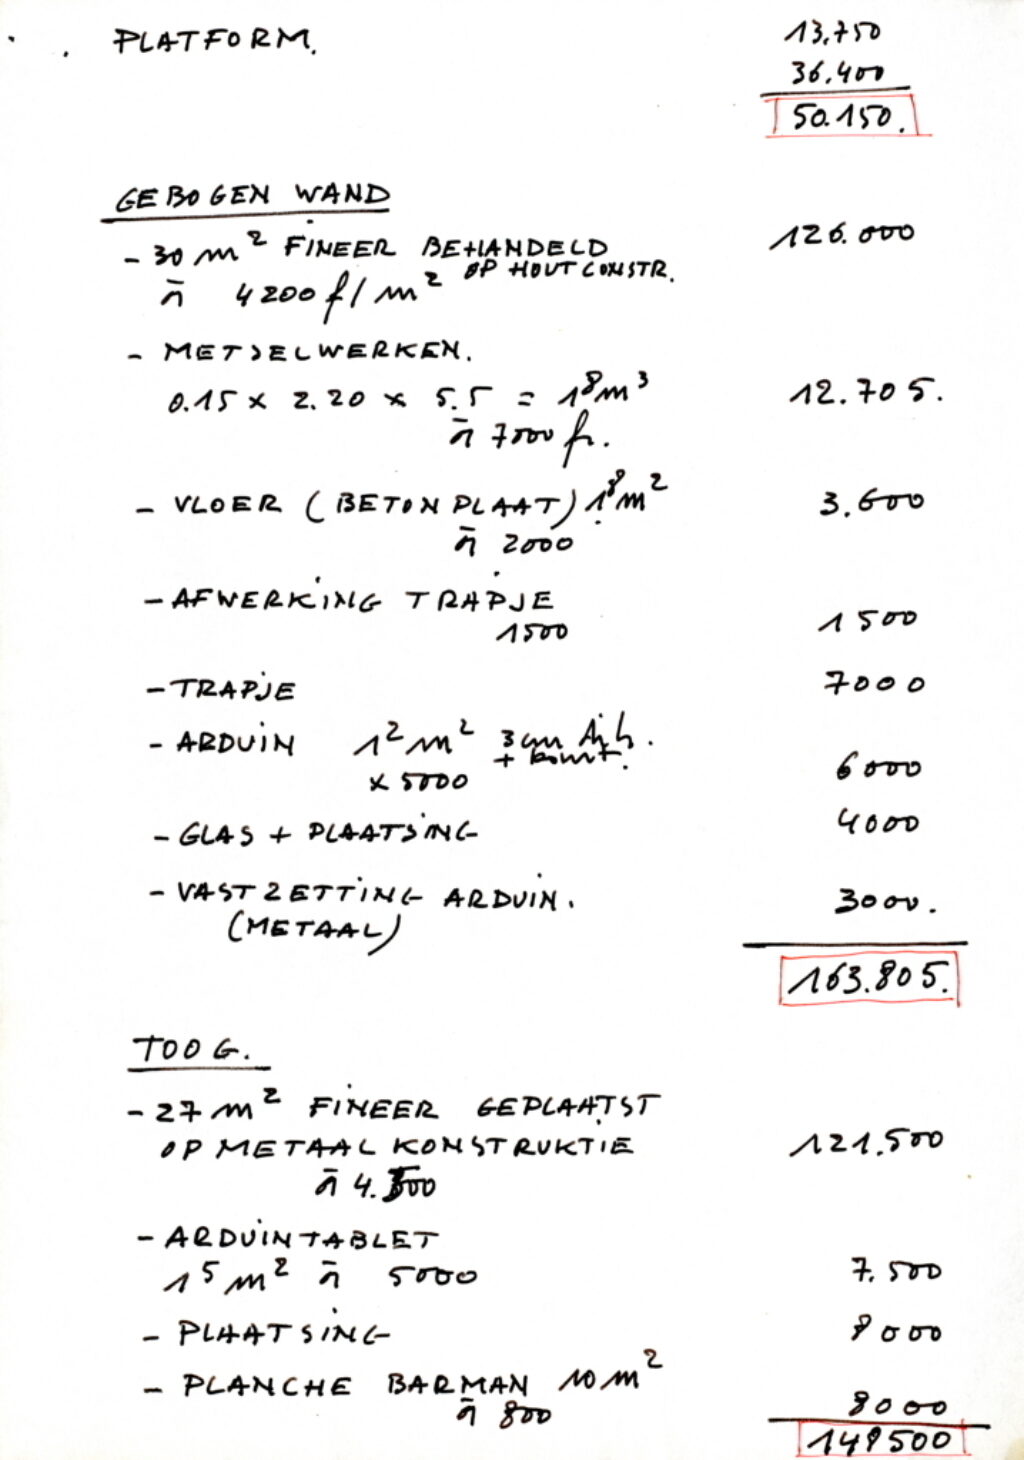 PLATFORM. 13.750
36.400
50.150.
GEBOGEN WAND
- 30 m² FINEER BEHANDELD 126.000
OP HOUTCONSTR.
à 4200 f/m²
- METSELWERKEN.
0.15 x 2.20 x 5.5 = 1⁸m³ 12.705.
à 7000 fr.
- VLOER (BETONPLAAT) 1⁸m² 3.600
à 2000
- AFWERKING TRAPJE
1500 1500
- TRAPJE 7000
- ARDUIN 1²m² 3cm dik.
x 5000 6000
- GLAS + PLAATSING 4000
- VASTZETTING ARDUIN. 3000.
(METAAL)
163.805.
TOOG.
- 27 m² FINEER GEPLAATST
OP METAAL KONSTRUKTIE 121.500
à 4.500
- ARDUINTABLET
1⁵m² à 5000 7.500
- PLAATSING 8000
- PLANCHE BARMAN 10 m²
à 800 8000
149500